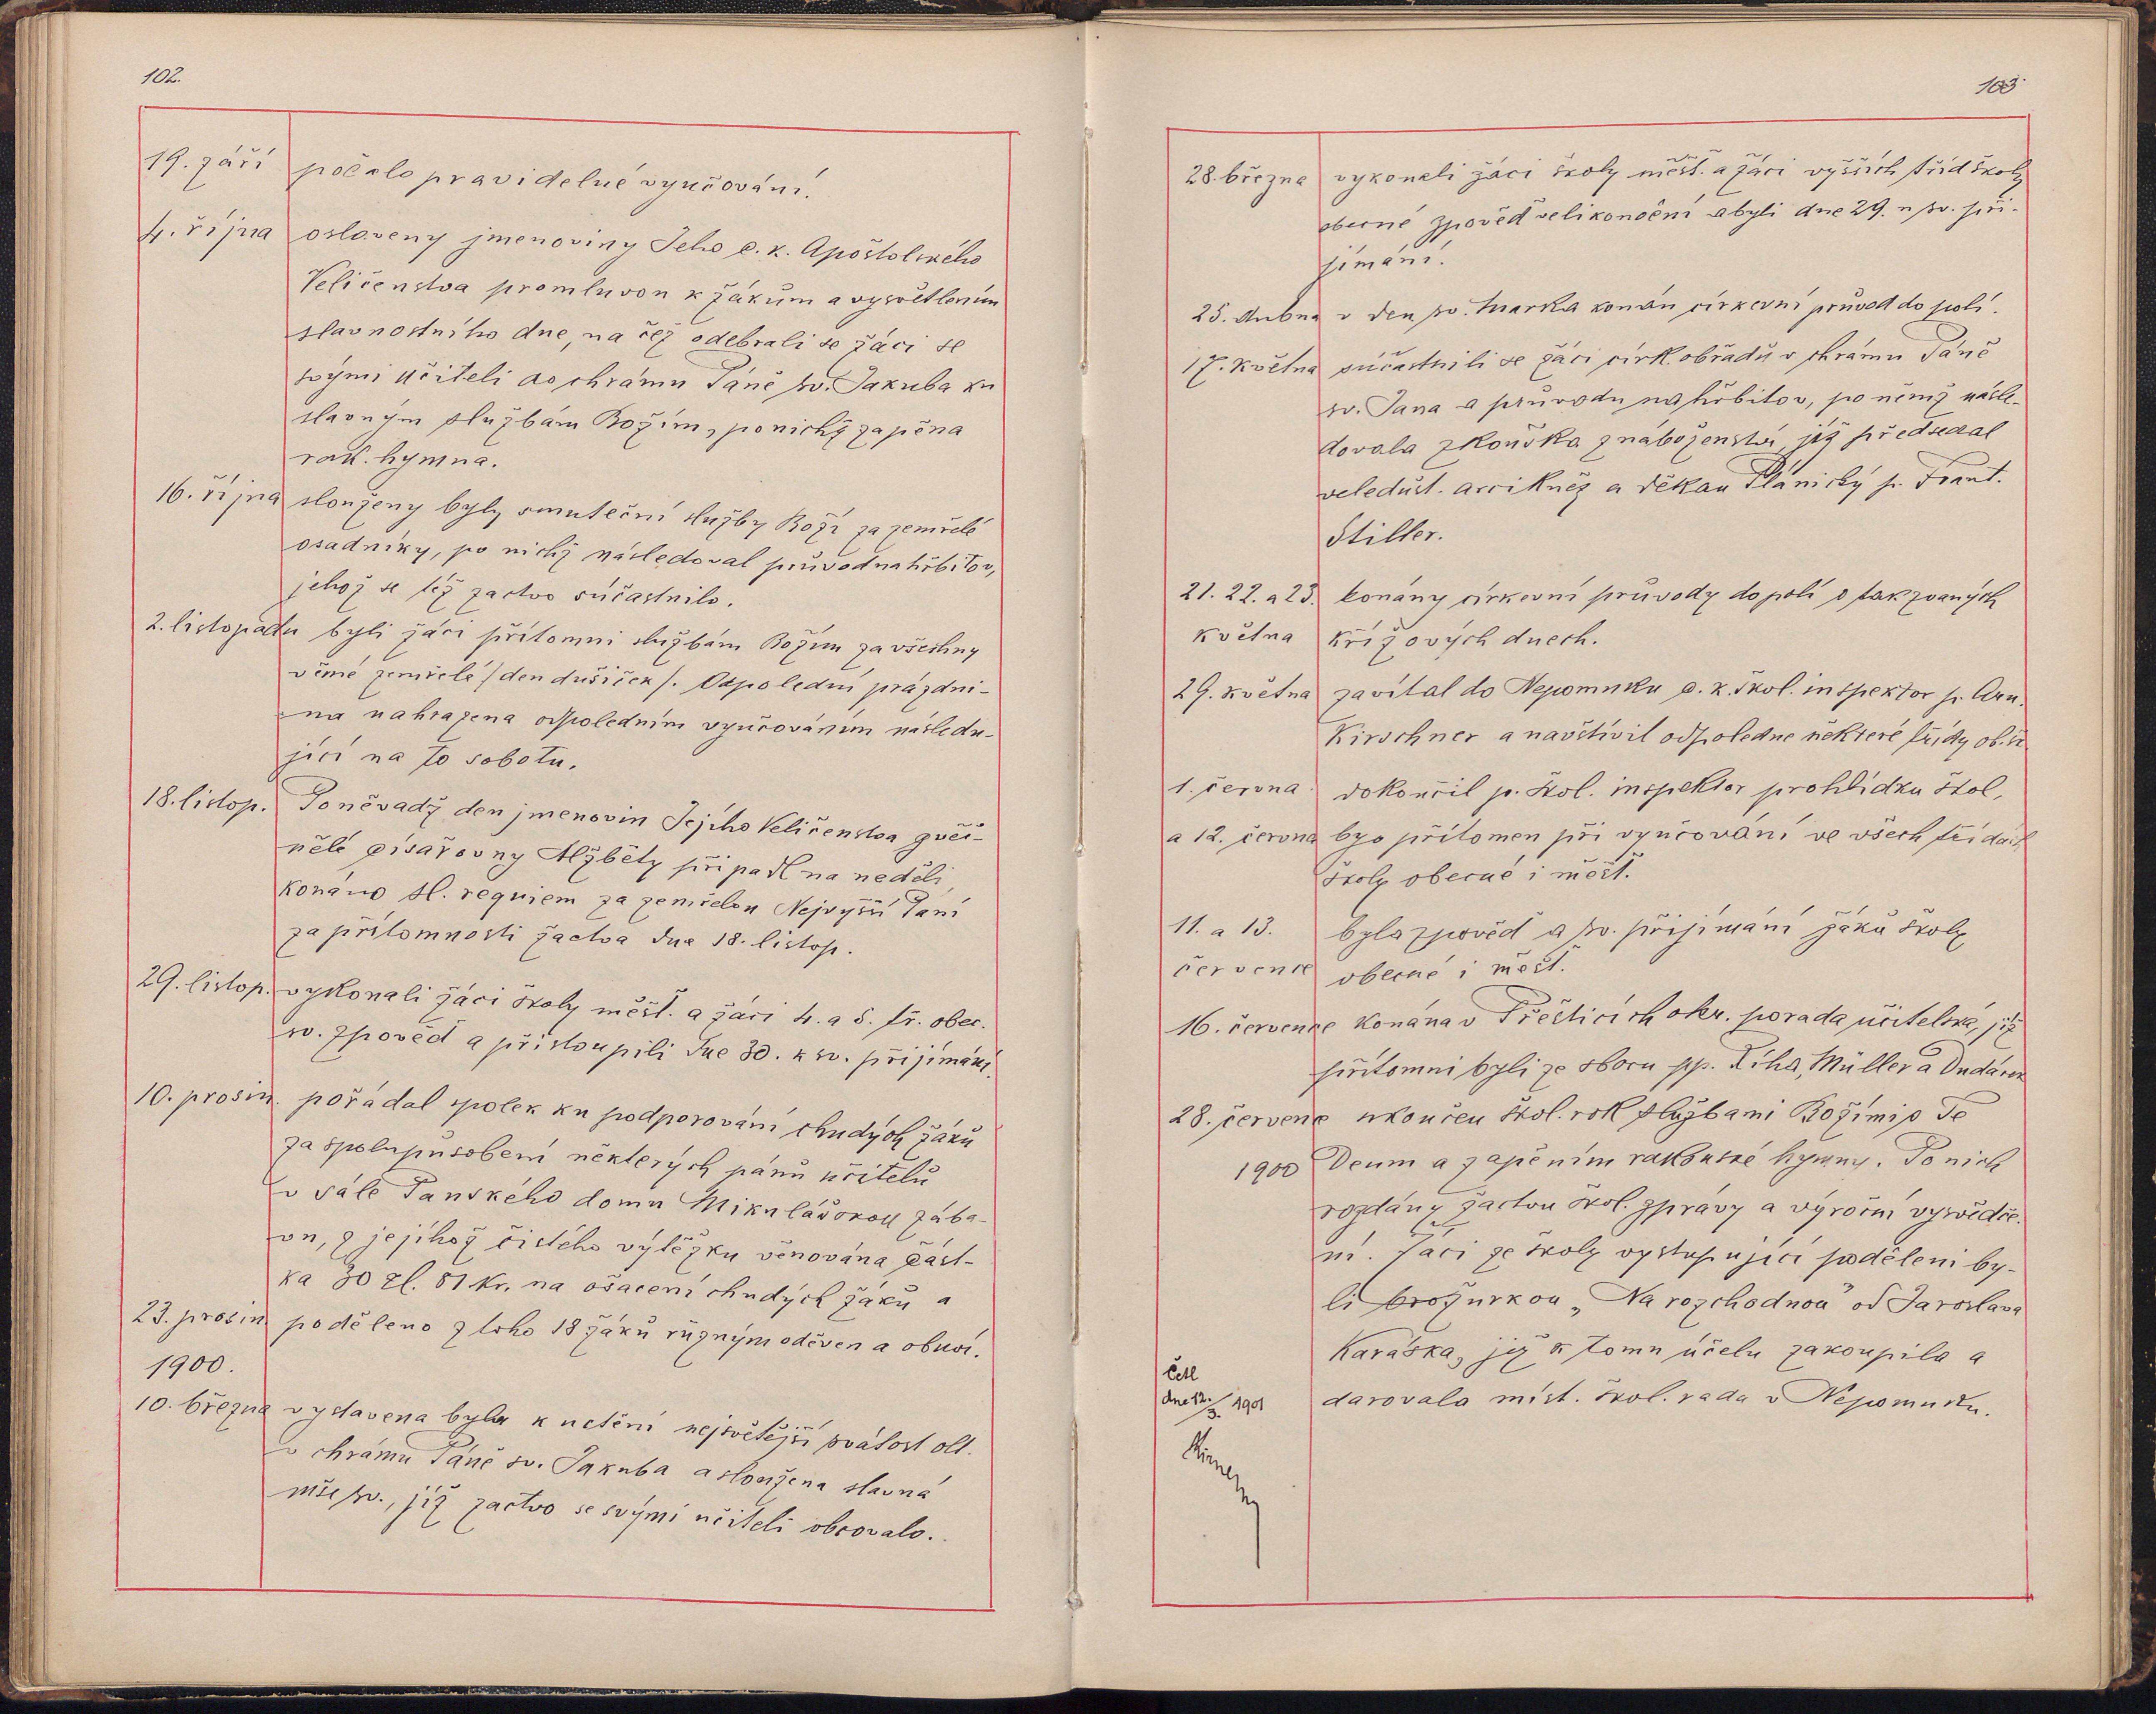 102.
19. září počalo pravidelné vyučování.
4. října oslaveny jmenoviny Jeho c. k. Apoštolského
Veličenstva promluvou k žákům a vysvětlením
slavnostního dne, na čež odebrali se žáci se
svými učiteli do chrámu Páně sv. Jakuba ku
slavným službám Božím, po nichž zapěna
rak. hymna.
16. října slouženy byly smuteční služby Boží za zemřelé
osadníky, po nichž následoval průvod na hřbitov,
jehož se též žactvo súčastnilo.
2. listopadu byli žáci přítomni službám Božím za všechny
věrné zemřelé /den dušiček/. Odpolední prázdni-
na nahrazena odpoledním vyučováním následu-
jící na to sobotu.
18. listop. Poněvadž den jmenovin Jejího Veličenstva zvěč-
nělé císařovny Alžběty připadl na neděli,
konáno sl. requiem za zemřelou Nejvyšší Paní
za přítomnosti žactva dne 18. listop.
29. listop. vykonali žáci školy měšť. a žáci 4. a 5. tř. obec.
sv. zpověď a přistoupili dne 30. k sv. přijímání.
10. prosin. pořádal spolek ku podporování chudých žáků
za spolupůsobení některých pánů učitelů
v sále Panského domu Mikulášskou zába-
vu, z jejíhož čistého výtěžku věnována část-
ka 30 zl. 81 kr. na ošacení chudých žáků a
23. prosin poděleno z toho 18 žáků různým oděvem a obuví.
1900.
10. března vystavena byla k uctění nejsvětější svátost olt.
v chrámu Páně sv. Jakuba a sloužena slavná
mše sv., jíž žactvo se svými učiteli obcovalo.
103
28. března vykonali žáci školy měšť. a žáci vyšších tříd školy
obecné zpověď velikonoční a byli dne 29. u sv. při-
jímání.
25. dubna v den sv. Marka konán církevní průvod do polí.
17. května súčastnili se žáci círk. obřadů v chrámu Páně
sv. Jana a průvodu na hřbitov, po němž násle-
dovala zkouška z náboženství, jíž předsedal
veledůst. arcikněz a děkan Plánický p. Frant.
Stiller.
21. 22. a 23. konány církevní průvody do polí o takzvaných
května křížových dnech.
29. května zavítal do Nepomuku c. k. škol. inspektor p. Ant.
Kirschner a navštívil odpoledne některé třídy ob. šk.
1. června dokončil p. škol. inspektor prohlídku škol,
a 12. června byv přítomen při vyučování ve všech třídách
školy obecné i měšť.
11. a 13. byla zpověď a sv. přijímání žáků školy
července obecné i měšť.
16. července konána v Přešticích okr. porada učitelská, jíž
přítomni byli ze sboru pp. Říha, Müller a Dudáček
28. července ukončen škol. rok službami Božími s Te
1900 Deum a zapěním rakouské hymny. Po nich
rozdány žactvu škol. zprávy a výroční vysvědče-
ní. Žáci ze školy vystupující poděleni by-
li brožurkou „Na rozchodnou" od Jaroslava
Karáska, již k tomu účelu zakoupila a
darovala míst. škol. rada v Nepomuku.
Četl
dne 12./3. 1901